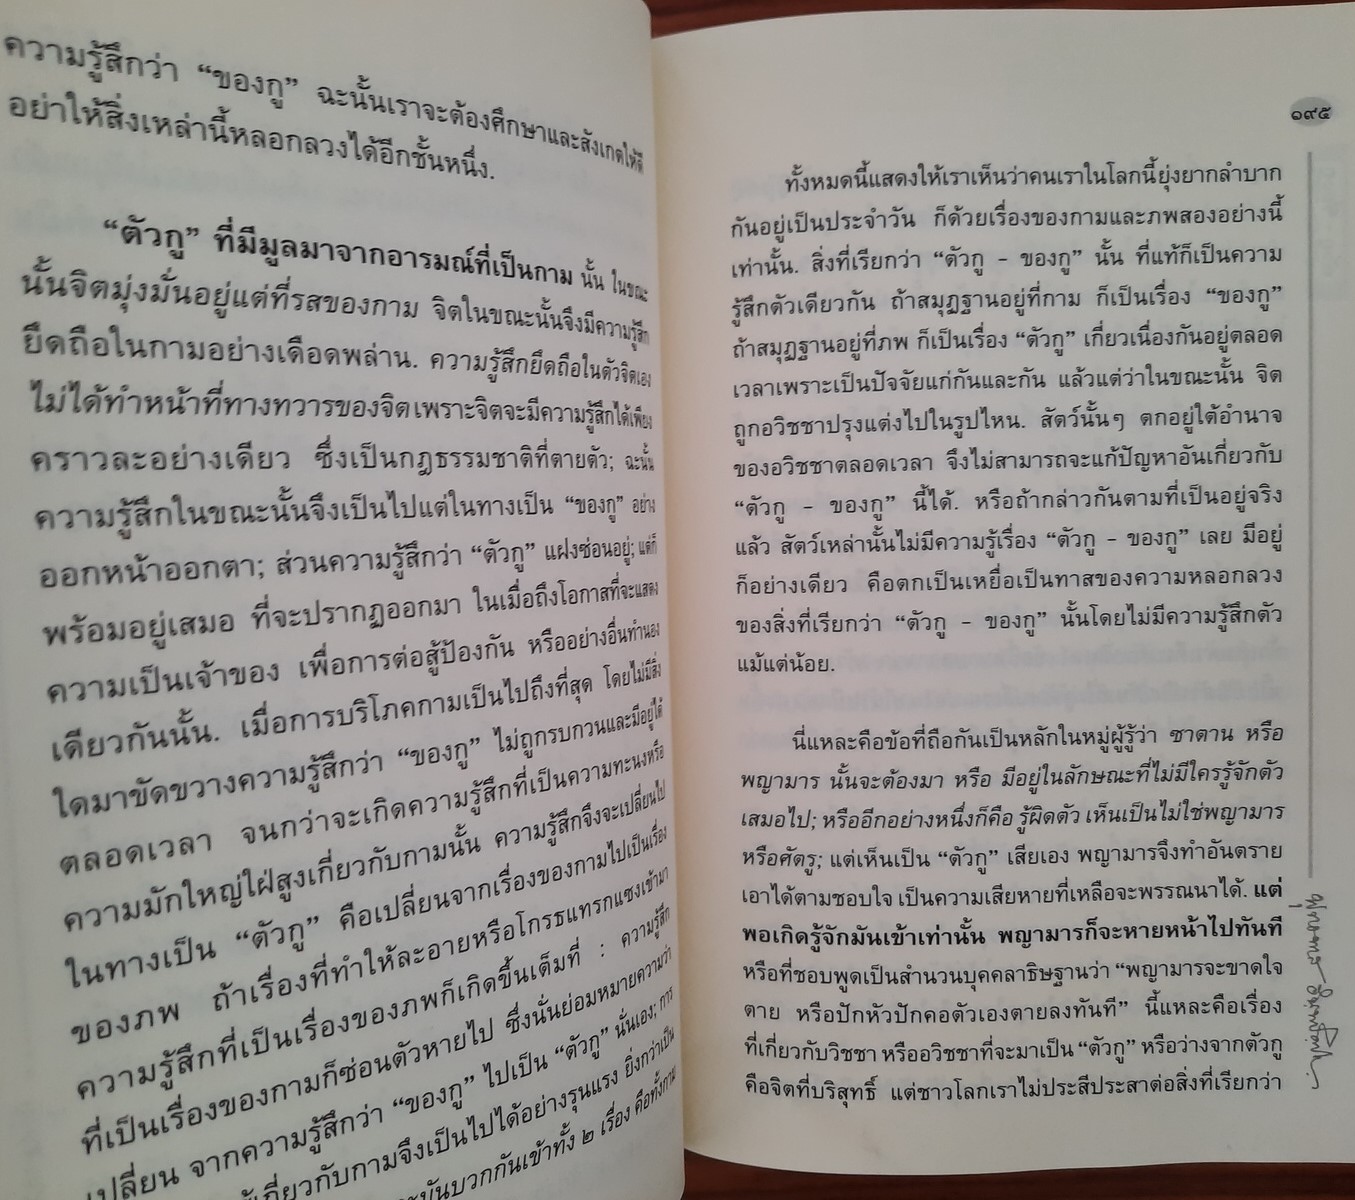 ความรู้สึกว่า “ของกู” ฉะนั้นเราจะต้องศึกษาและสังเกตให้ดี
อย่าให้สิ่งเหล่านี้หลอกลวงได้อีกชั้นหนึ่ง.
“ตัวกู” ที่มีมูลมาจากอารมณ์ที่เป็นกาม นั้น ในขณะ
นั้นจิตมุ่งมั่นอยู่แต่ที่รสของกาม จิตในขณะนั้นจึงมีความรู้สึก
ยึดถือในกามอย่างเดือดพล่าน. ความรู้สึกยึดถือในตัวจิตเอง
ไม่ได้ทำหน้าที่ทางทวารของจิตเพราะจิตจะมีความรู้สึกได้เพียง
คราวละอย่างเดียว ซึ่งเป็นกฎธรรมชาติที่ตายตัว; ฉะนั้น
ความรู้สึกในขณะนั้นจึงเป็นไปแต่ในทางเป็น “ของกู” อย่าง
ออกหน้าออกตา; ส่วนความรู้สึกว่า “ตัวกู” แฝงซ่อนอยู่; แต่ก็
พร้อมอยู่เสมอ ที่จะปรากฏออกมา ในเมื่อถึงโอกาสที่จะแสดง
ความเป็นเจ้าของ เพื่อการต่อสู้ป้องกัน หรืออย่างอื่นทำนอง
เดียวกันนั้น. เมื่อการบริโภคกามเป็นไปถึงที่สุด โดยไม่มีสิ่ง
ใดมาขัดขวางความรู้สึกว่า “ของกู” ไม่ถูกรบกวนและมีอยู่ได้
ตลอดเวลา จนกว่าจะเกิดความรู้สึกที่เป็นความทะนงหรือ
ความมักใหญ่ใฝ่สูงเกี่ยวกับกามนั้น ความรู้สึกจึงจะเปลี่ยนไป
ในทางเป็น “ตัวกู” คือเปลี่ยนจากเรื่องของกามไปเป็นเรื่อง
ของภพ ถ้าเรื่องที่ทำให้ละอายหรือโกรธแทรกแซงเข้ามา
ความรู้สึกที่เป็นเรื่องของภพก็เกิดขึ้นเต็มที่ : ความรู้สึก
ที่เป็นเรื่องของกามก็ซ่อนตัวหายไป ซึ่งนั่นย่อมหมายความว่า
เปลี่ยน จากความรู้สึกว่า “ของกู” ไปเป็น “ตัวกู” นั่นเอง; การ
เกี่ยวกับกามจึงเป็นไปได้อย่างรุนแรง ยิ่งกว่าเป็น
มันบวกกันเข้าทั้ง ๒ เรื่อง คือทั้งกาม
๑๙๕
ทั้งหมดนี้แสดงให้เราเห็นว่าคนเราในโลกนี้ยุ่งยากลำบาก
กันอยู่เป็นประจำวัน ก็ด้วยเรื่องของกามและภพสองอย่างนี้
เท่านั้น. สิ่งที่เรียกว่า “ตัวกู – ของกู” นั้น ที่แท้ก็เป็นความ
รู้สึกตัวเดียวกัน ถ้าสมุฏฐานอยู่ที่กาม ก็เป็นเรื่อง “ของกู”
ถ้าสมุฏฐานอยู่ที่ภพ ก็เป็นเรื่อง “ตัวกู” เกี่ยวเนื่องกันอยู่ตลอด
เวลาเพราะเป็นปัจจัยแก่กันและกัน แล้วแต่ว่าในขณะนั้น จิต
ถูกอวิชชาปรุงแต่งไปในรูปไหน. สัตว์นั้นๆ ตกอยู่ใต้อำนาจ
ของอวิชชาตลอดเวลา จึงไม่สามารถจะแก้ปัญหาอันเกี่ยวกับ
“ตัวกู – ของกู” นี้ได้. หรือถ้ากล่าวกันตามที่เป็นอยู่จริง
แล้ว สัตว์เหล่านั้นไม่มีความรู้เรื่อง “ตัวกู – ของกู” เลย มีอยู่
ก็อย่างเดียว คือตกเป็นเหยื่อเป็นทาสของความหลอกลวง
ของสิ่งที่เรียกว่า “ตัวกู – ของกู” นั้นโดยไม่มีความรู้สึกตัว
แม้แต่น้อย.
นี่แหละคือข้อที่ถือกันเป็นหลักในหมู่ผู้รู้ว่า ซาตาน หรือ
พญามาร นั้นจะต้องมา หรือ มีอยู่ในลักษณะที่ไม่มีใครรู้จักตัว
เสมอไป; หรืออีกอย่างหนึ่งก็คือ รู้ผิดตัว เห็นเป็นไม่ใช่พญามาร
หรือศัตรู; แต่เห็นเป็น “ตัวกู” เสียเอง พญามารจึงทำอันตราย
เอาได้ตามชอบใจ เป็นความเสียหายที่เหลือจะพรรณนาได้. แต่
พอเกิดรู้จักมันเข้าเท่านั้น พญามารก็จะหายหน้าไปทันที
หรือที่ชอบพูดเป็นสำนวนบุคคลาธิษฐานว่า “พญามารจะขาดใจ
ตาย หรือปักหัวปักคอตัวเองตายลงทันที” นี้แหละคือเรื่อง
ที่เกี่ยวกับวิชชา หรืออวิชชาที่จะมาเป็น “ตัวกู” หรือว่างจากตัวกู
คือจิตที่บริสุทธิ์ แต่ชาวโลกเราไม่ประสีประสาต่อสิ่งที่เรียกว่า